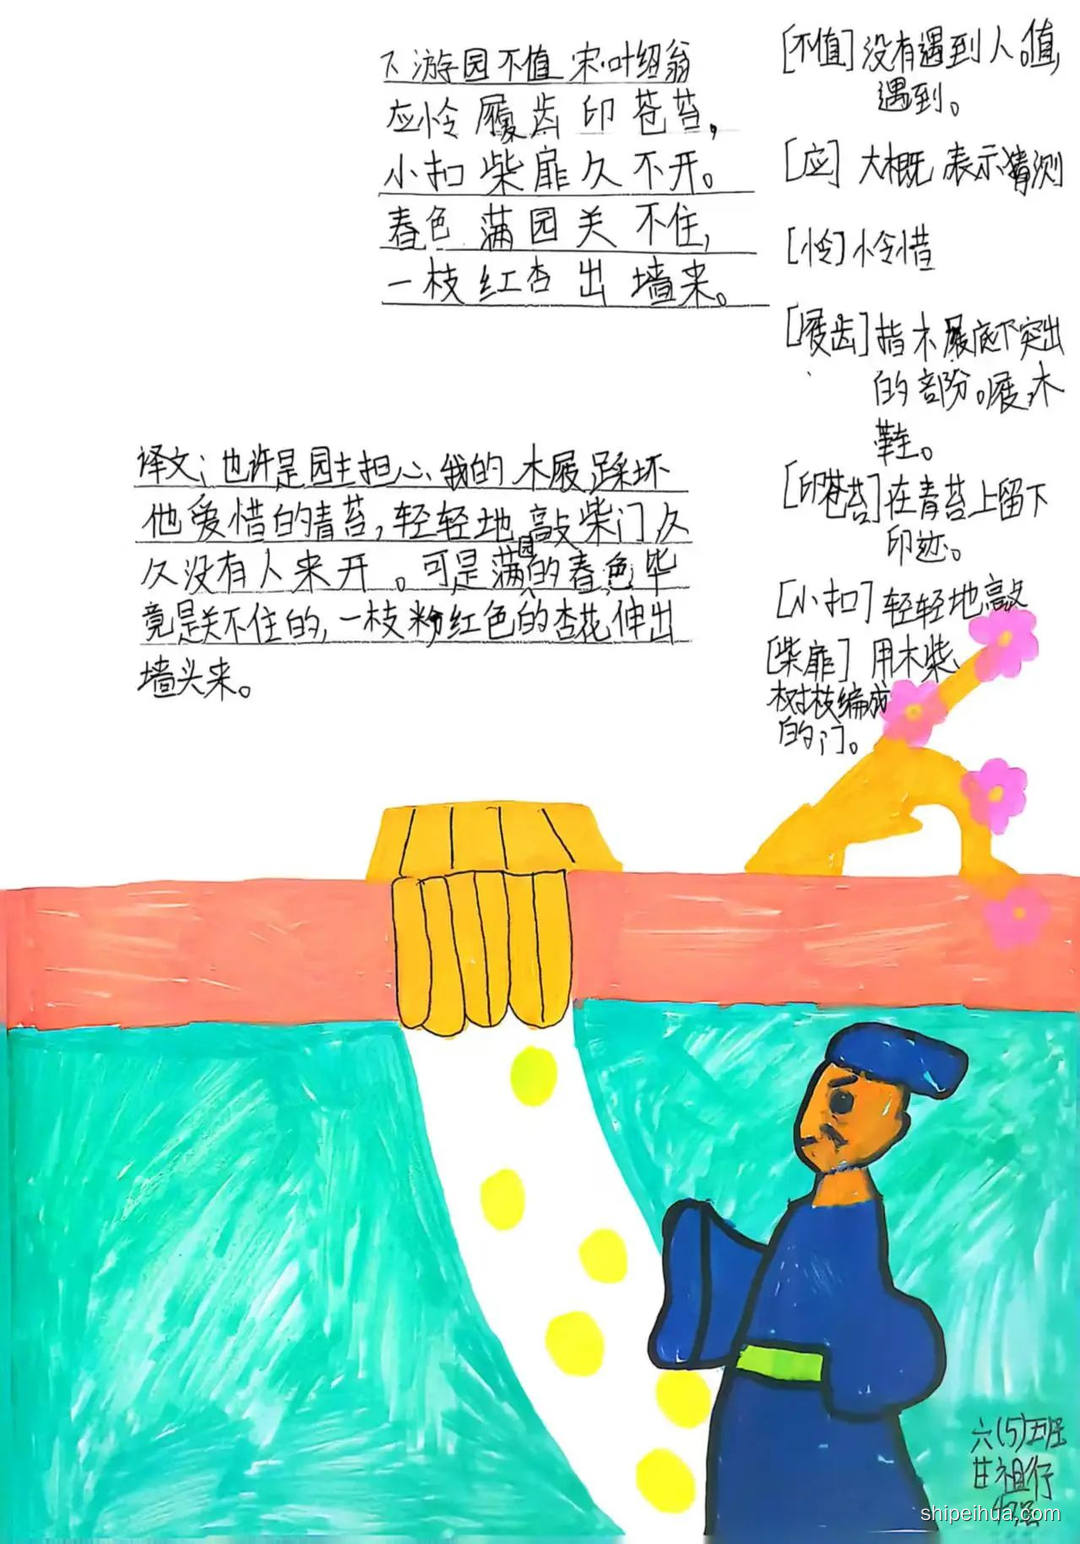 7. 游园不值 宋·叶绍翁
应怜屐齿印苍苔,
小扣柴扉久不开。
春色满园关不住,
一枝红杏出墙来。
[不值]没有遇到人。值,
遇到。
[应] 大概 表示猜测
[怜]怜惜
[屐齿]指木屐底下突出
的部份。屐,木
鞋。
[印苍苔]在青苔上留下
印迹。
[小扣]轻轻地敲
[柴扉] 用木柴、
树枝编成
的门。
译文:也许是园主担心我的木屐踩坏
他爱惜的青苔,轻轻地敲柴门久
久没有人来开。可是满园的春色毕
竟是关不住的,一枝粉红色的杏花伸出
墙头来。
六(5)班
甘祖仔
shipeihua.com